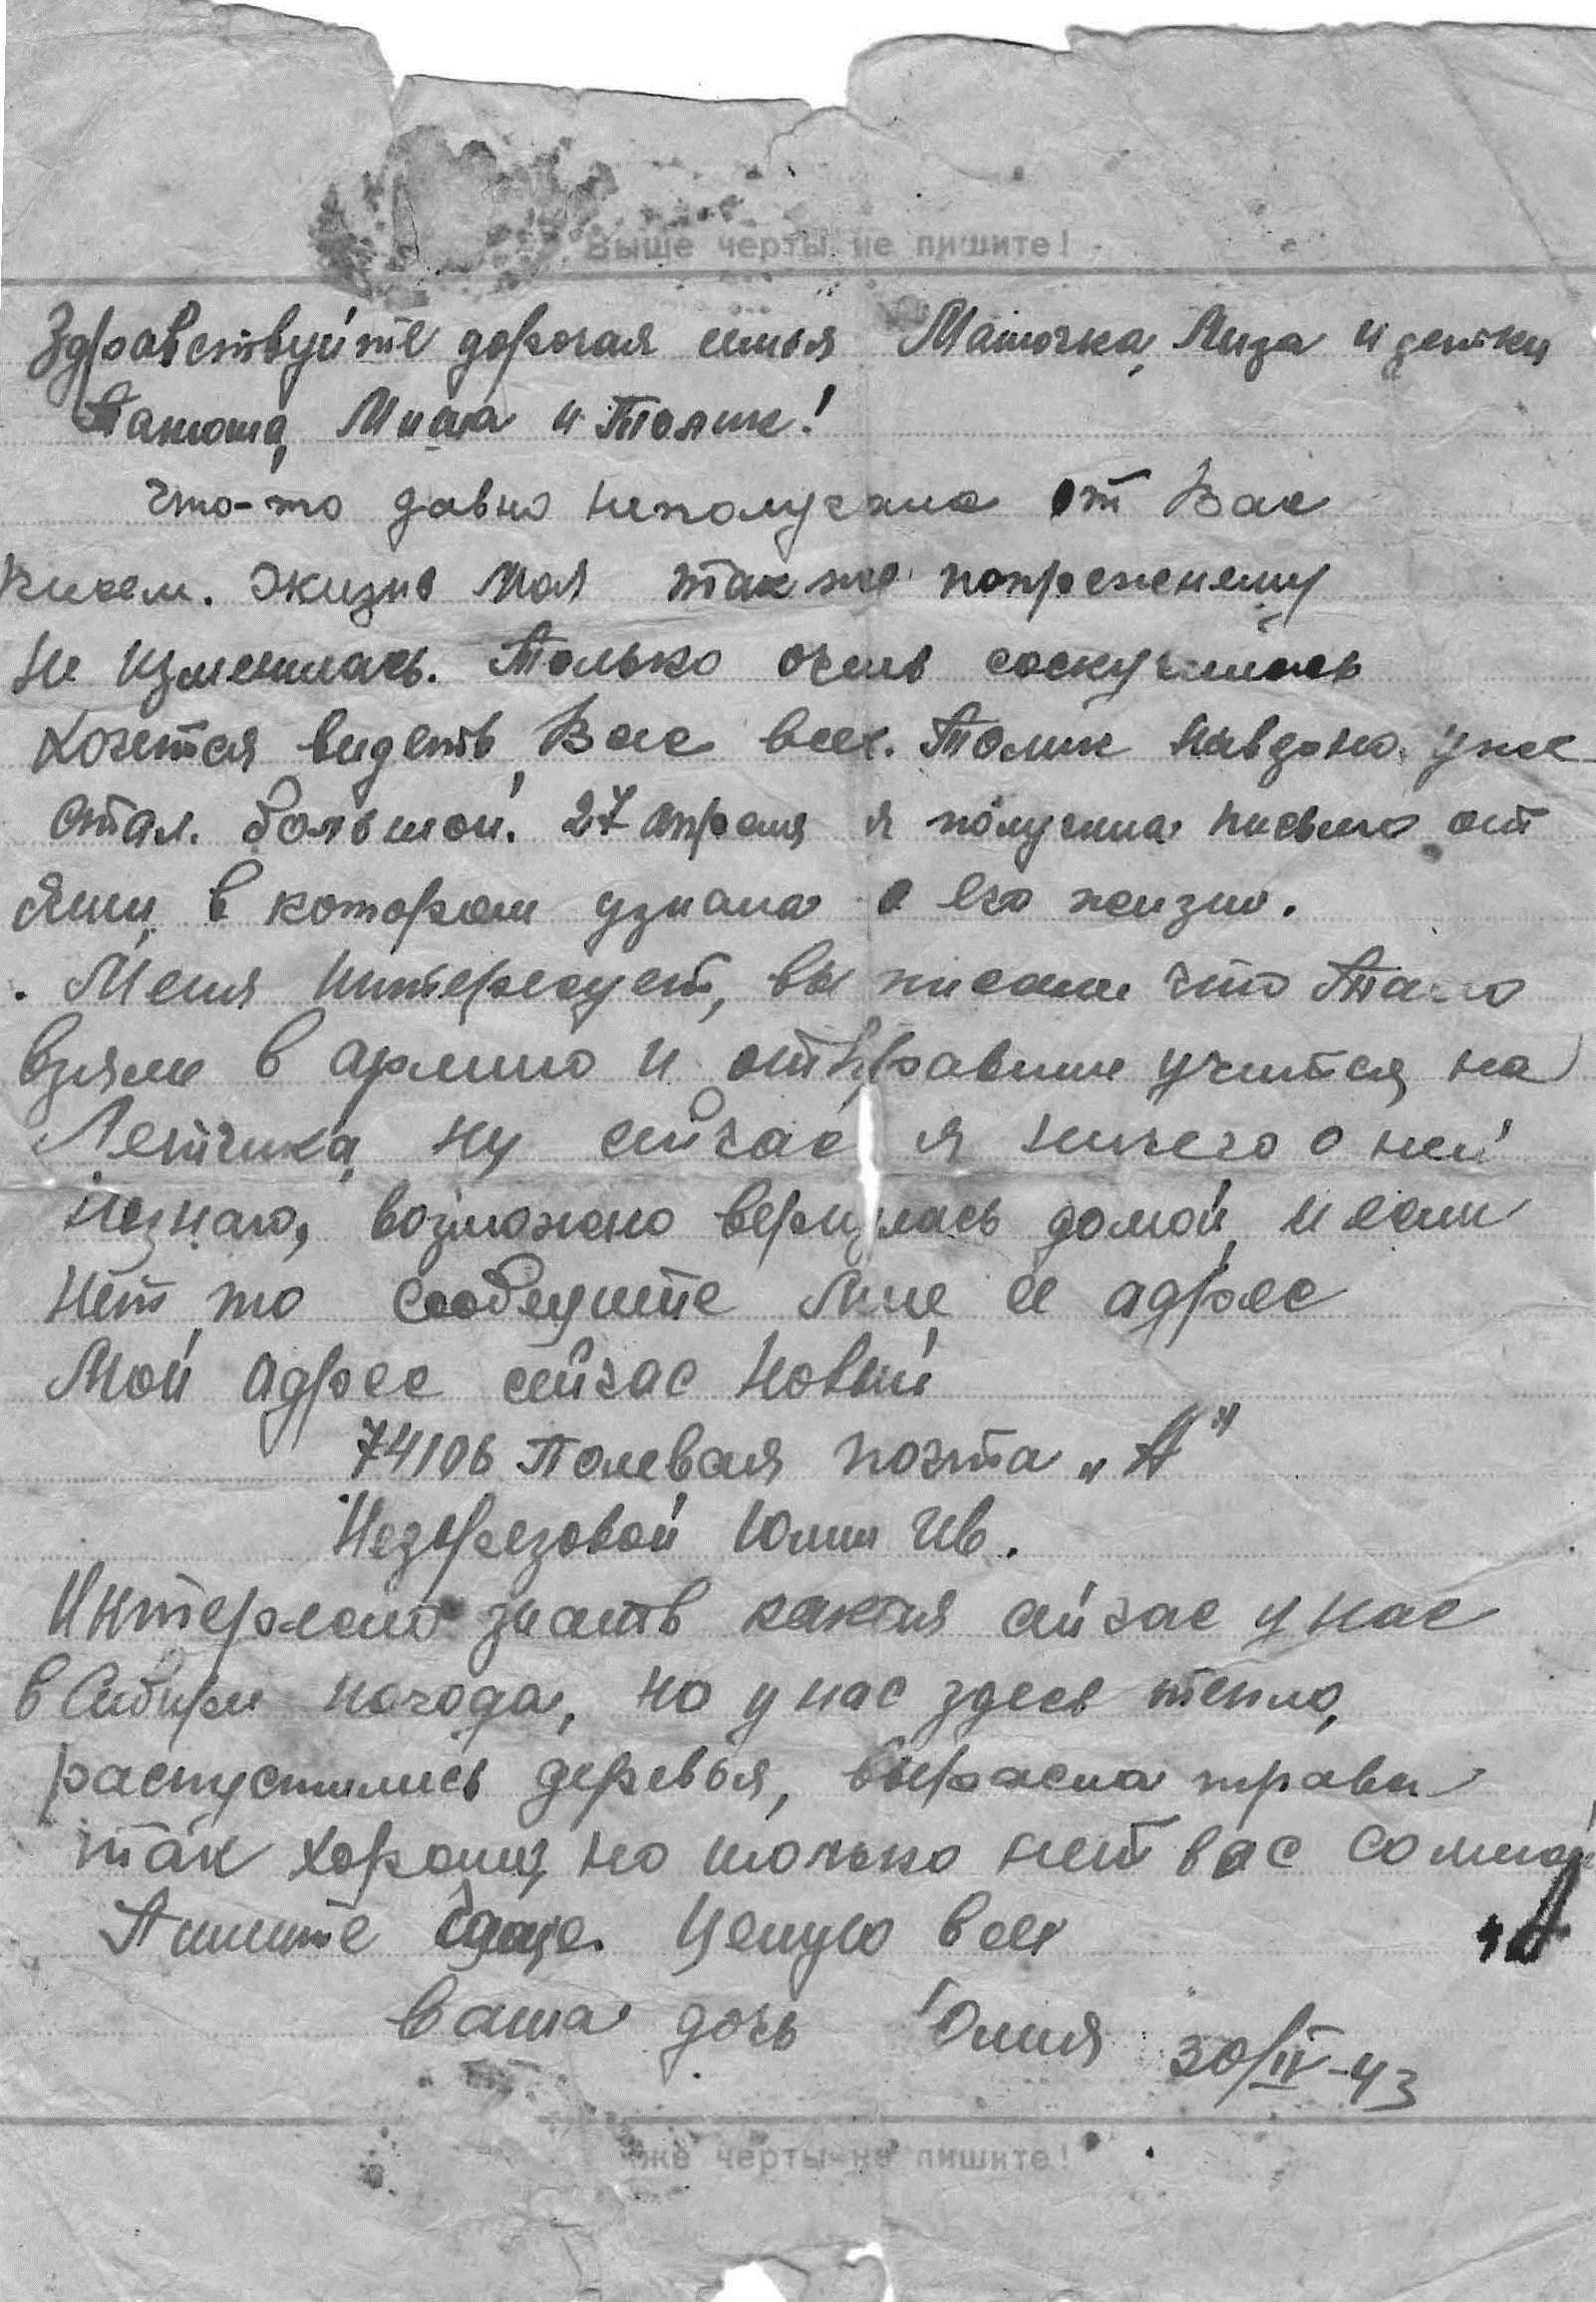 Выше черты не пишите!
Здравствуйте дорогая семья Мамочка, Лиза и детки
Танюша, Миша и Толик!
Что-то давно неполучала от Вас
писем. Жизнь моя так же попрежнему
не изменилась. Только очень соскучилась
хочется видеть Вас всех. Толик наверно уже
стал большой. 27 апреля я получила письмо от
Яши, в котором узнала о его жизни.
Меня интересует, вы писали что Таню
взяли в армию и отправили учится на
Летчика, ну сейчас я ничего о ней
незнаю, возможно вернулась домой, и если
нет, то сообщите мне ее адрес
Мой адрес сейчас новый
74106 Полевая почта „А"
Юлии Ив.
Интересно знать какая сейчас у нас
в Сибири погода, но у нас здесь тепло,
распустились деревья, выросла трава
так хорошо, но только нет вас со мной
Пишите чаще. Целую всех
„А
ваша дочь Юлия 30/IV-43
же черты не пишите!